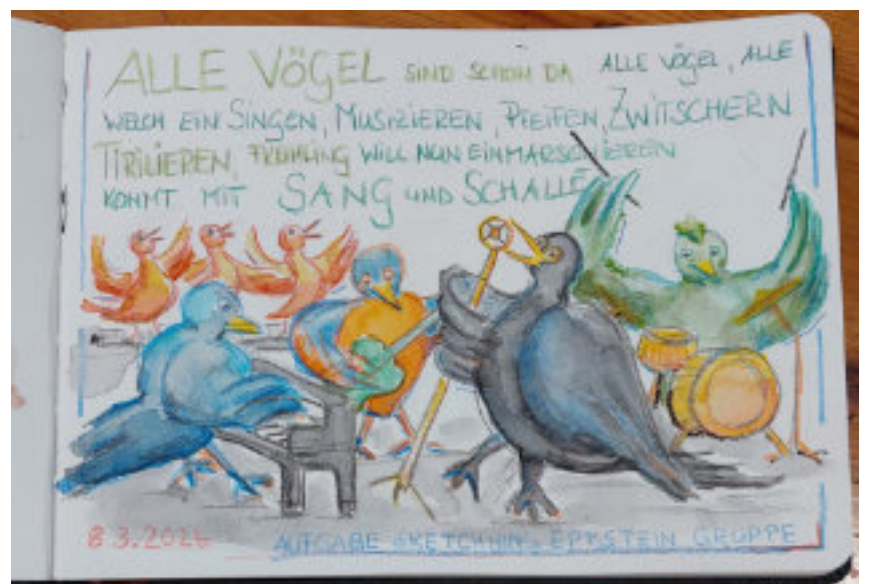 ALLE VÖGEL SIND SCHON DA ALLE VÖGEL, ALLE
WELCH EIN SINGEN, MUSIZIEREN, PFEIFEN, ZWITSCHERN
TIRILIEREN, FRÜHLING WILL NUN EINMARSCHIEREN
KOMMT MIT SANG UND SCHALLE
8 3.2026
AUFGABE SKETCHING EPPSTEIN GRUPPE